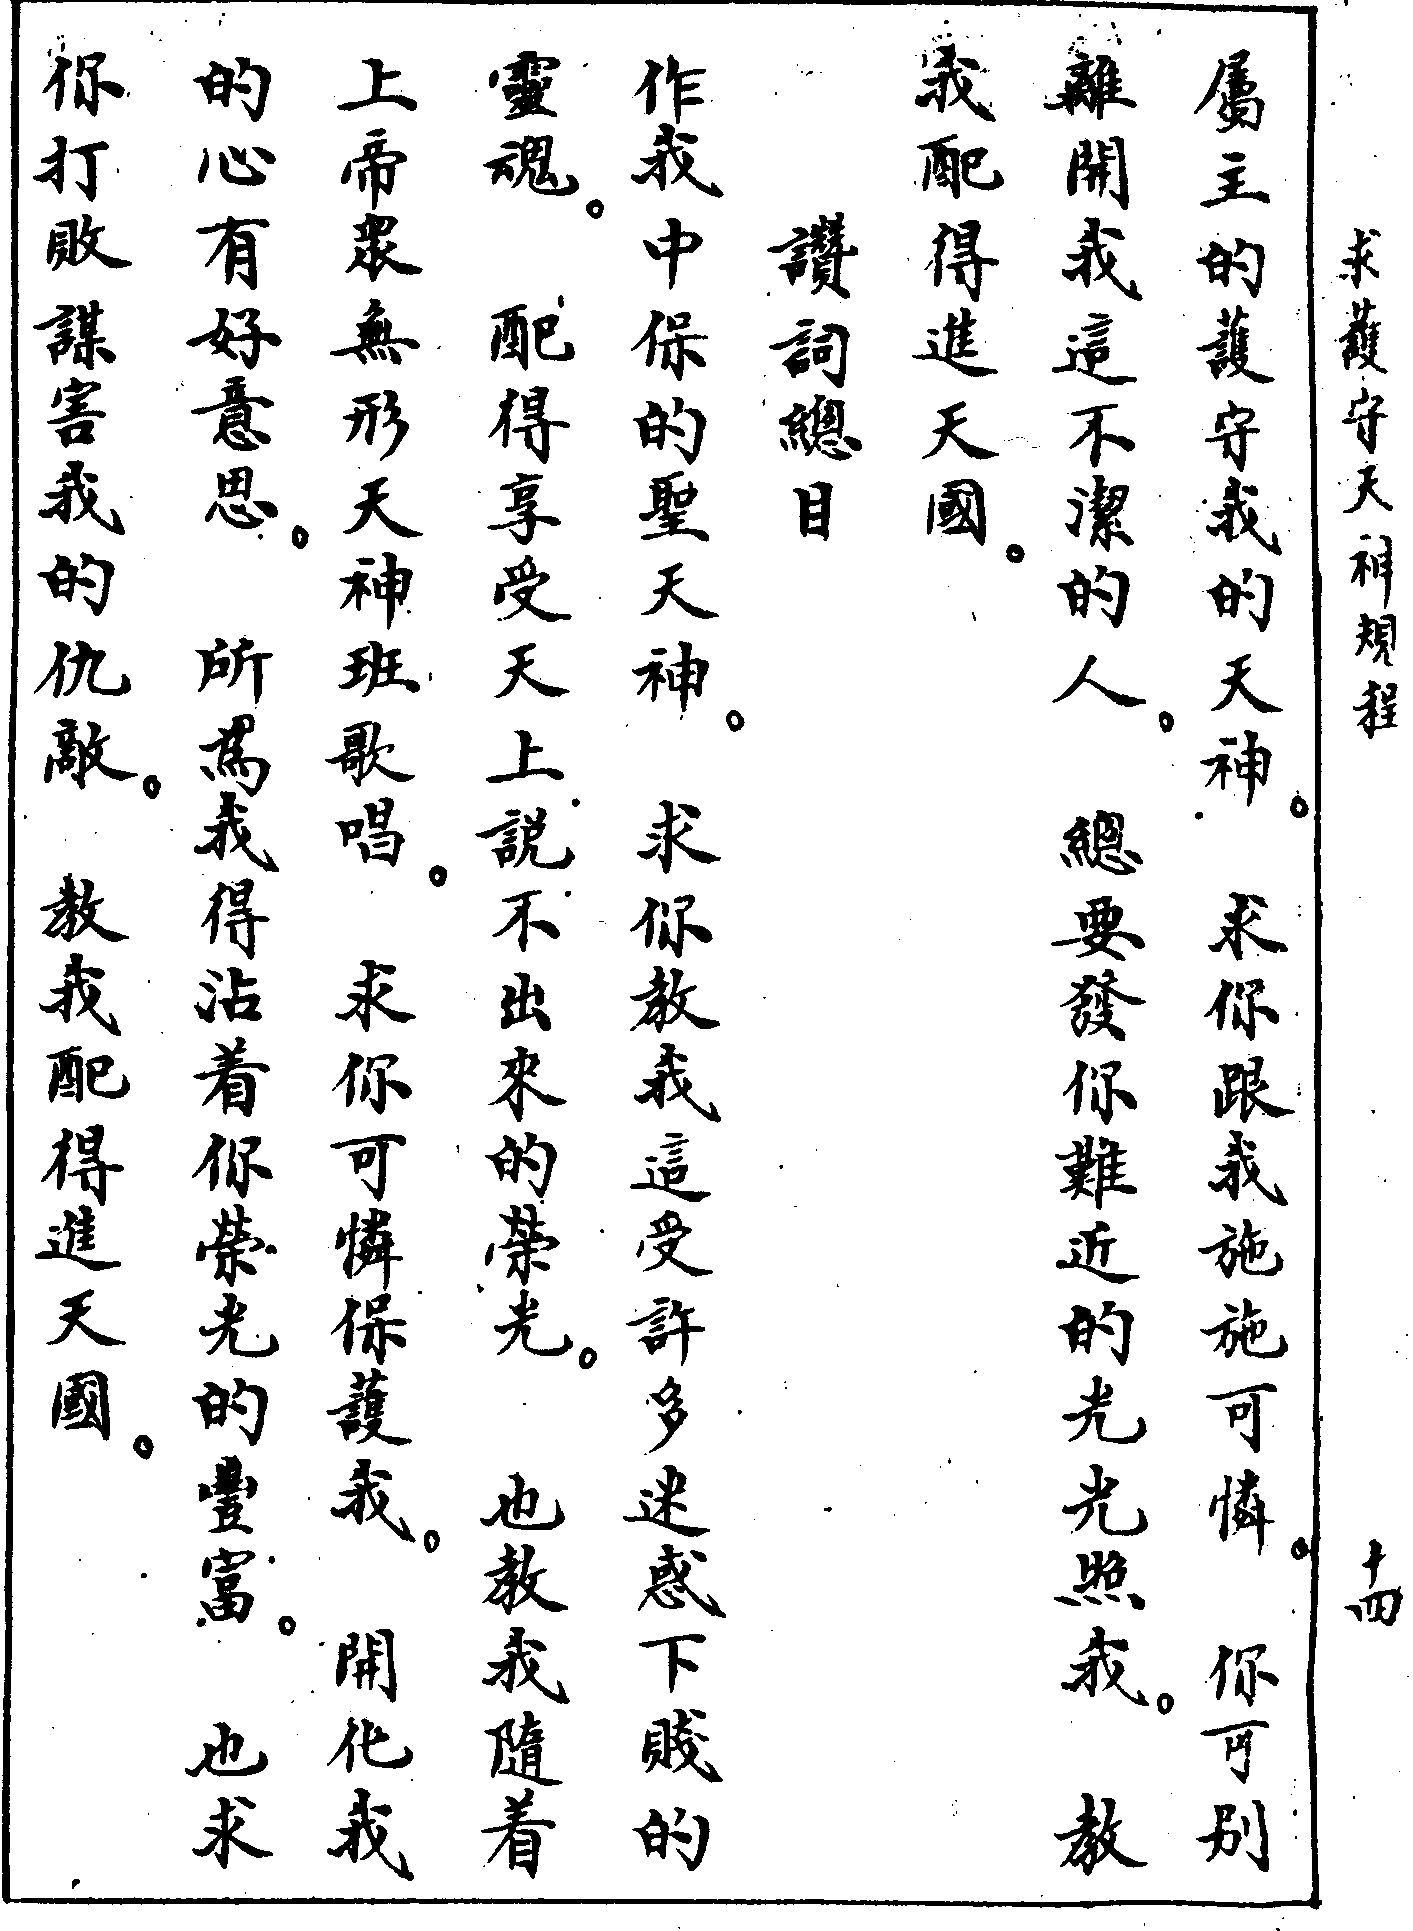 求護守天神規程 十四
屬主的護守我的天神。 求你跟我施施可憐。 你可別
離開我這不潔的人。 總要發你難近的光光照我。 教
我配得進天國。
讚詞總目
作我中保的聖天神。 求你教我這受許多迷惑下賤的
靈魂。 配得享受天上説不出來的榮光。 也教我隨着
上帝衆無形天神班歌唱。 求你可憐保護我。 開化我
的心有好意思。 所爲我得沾着你榮光的豐富。 也求
你打敗謀害我的仇敵。 教我配得進天國。